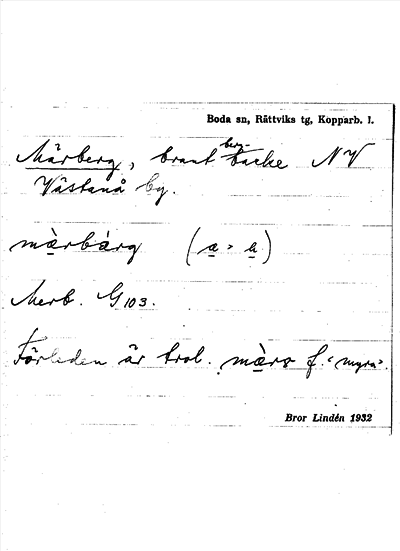 Boda sn, Rättviks tg, Kopparb. l.
Märberg, brant berg-backe NV
Västanå by.
mὰrbärg (a = a)
Merb. G 103.
Förleden är trol. mὰro f. "myra".
Bror Lindén 1932